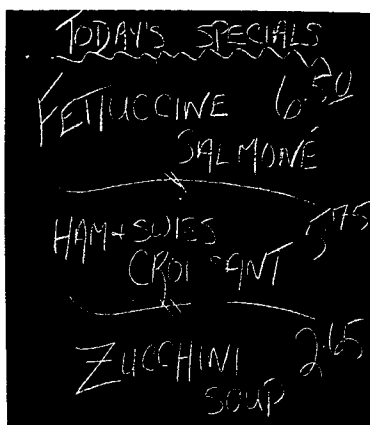 TODAY'S SPECIALS
FETTUCCINE 6.50
SALMONÉ
HAM + SWISS 5.75
CROISSANT
ZUCCHINI 2.65
SOUP